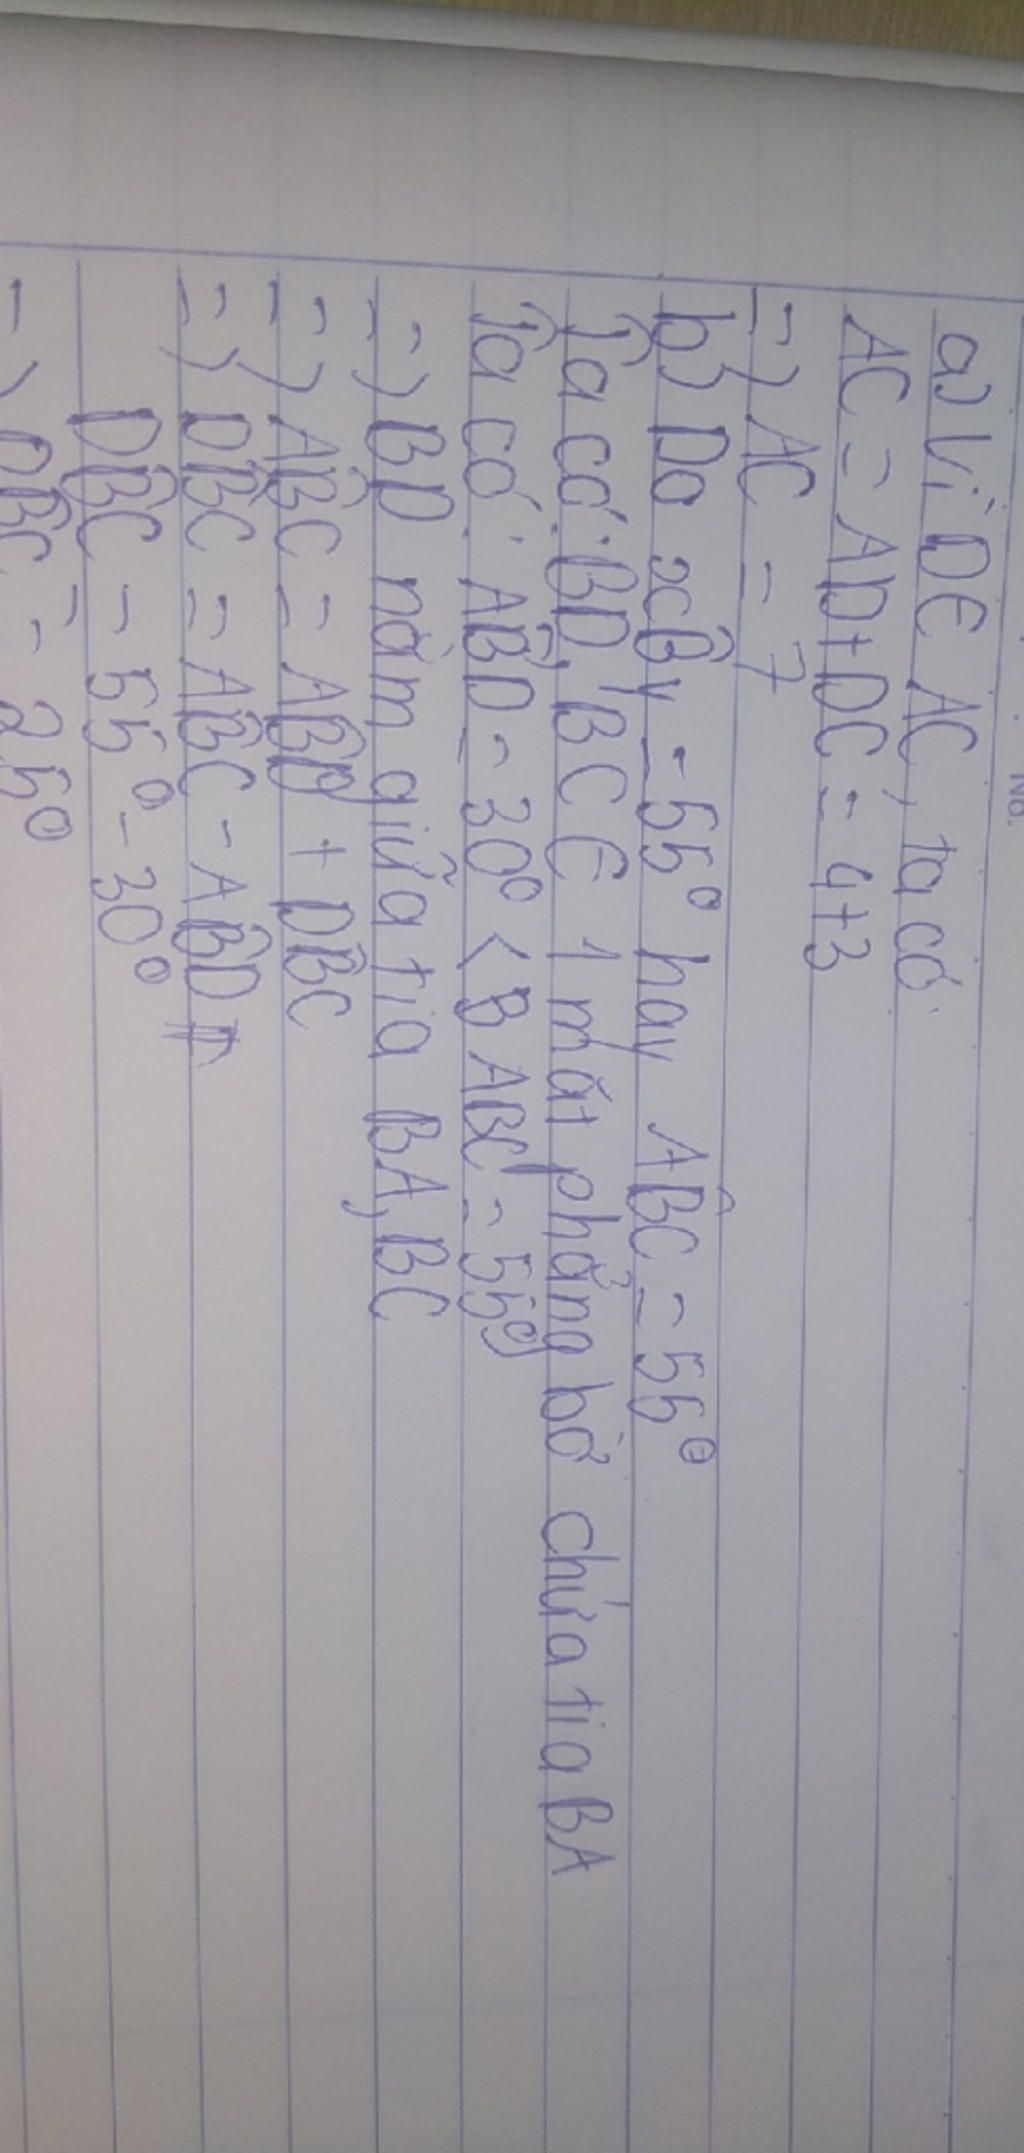 No.
a) Vì D∈ AC, ta có
AC = AD+DC = 4+3
=) AC = 7
b) Do xBy = 55° hay ABC = 55°
Ta có: BD, BC ∈ 1 mặt phẳng bờ chứa tia BA
Ta có: ABD = 30° < B ABC = 55°
=) BD nằm giữa tia BA, BC
=) ABC = ABD + DBC
=) DBC = ABC - ABD
DBC = 55° - 30°
=) DBC = 25°